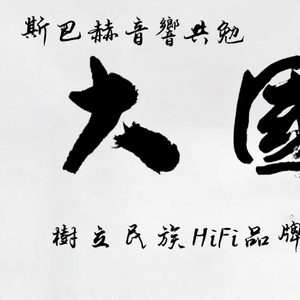 斯巴赫音響共勉
大國
樹立民族HiFi品牌